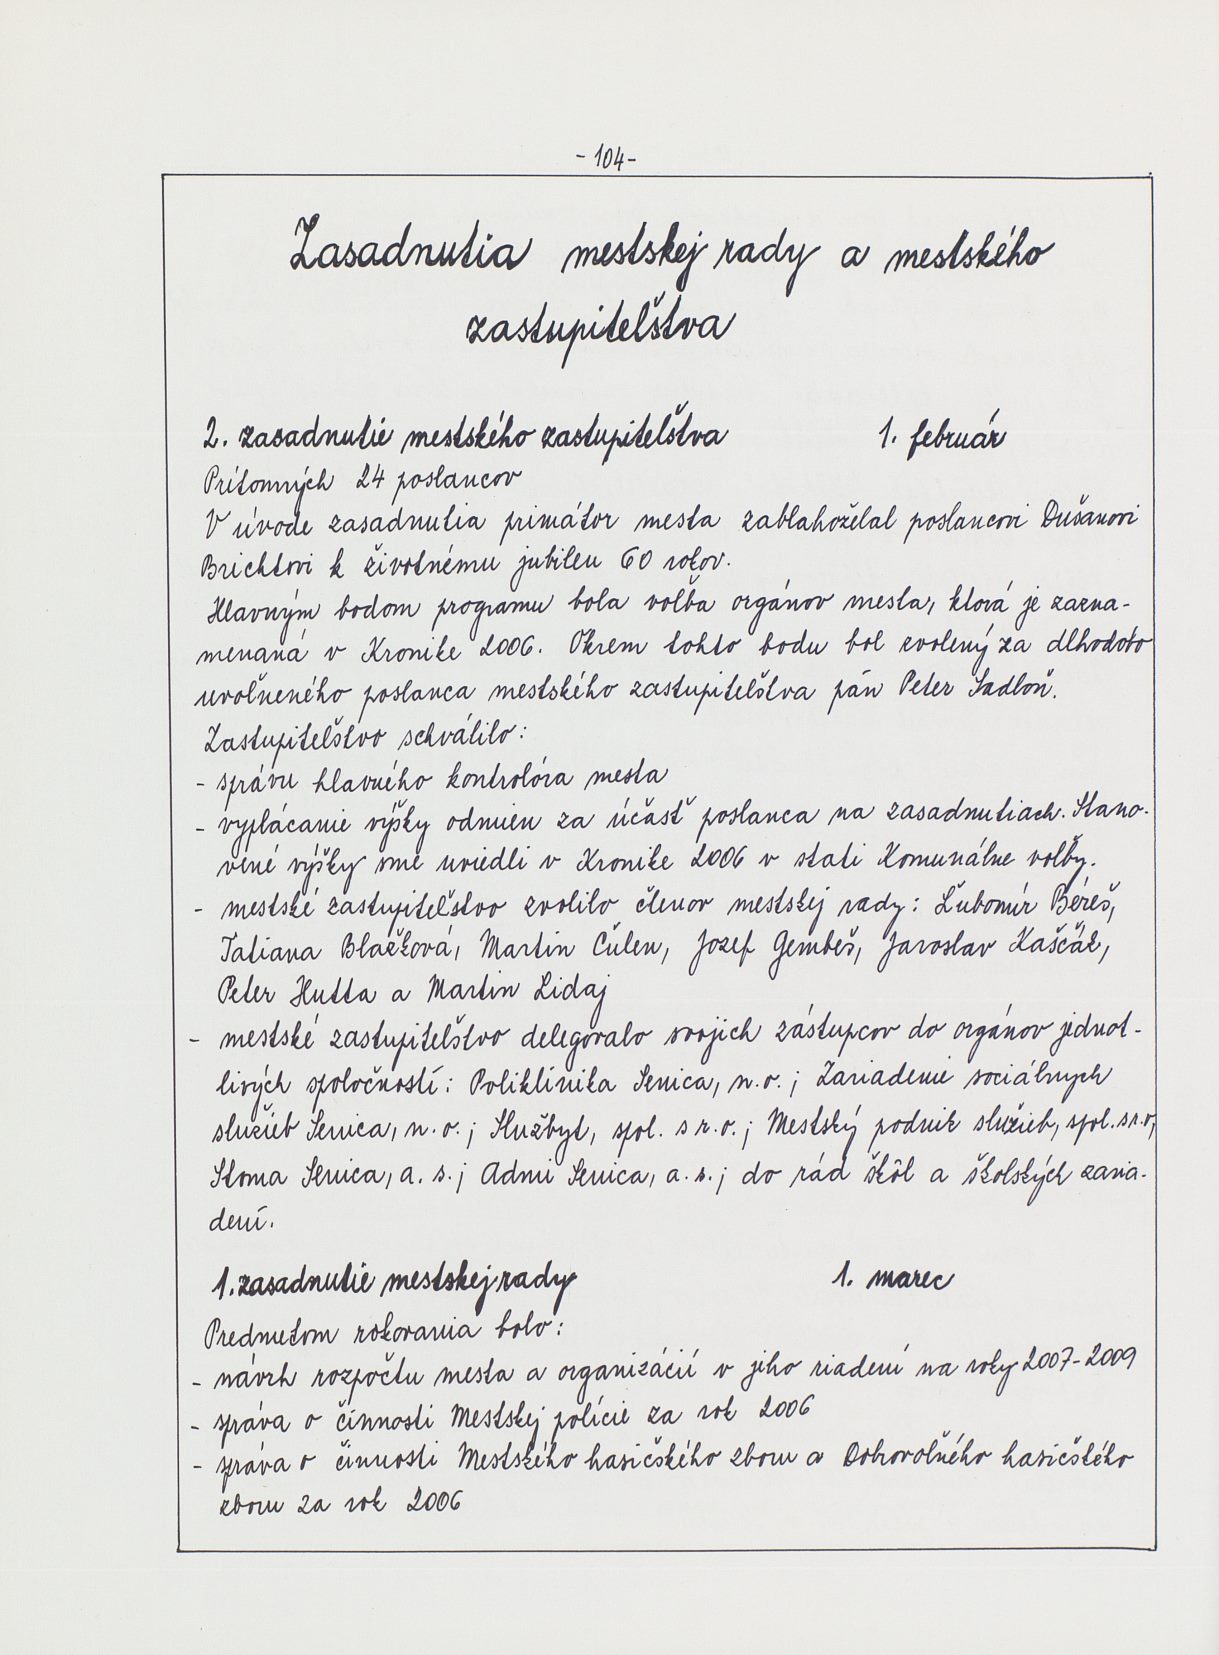 - 104 -
Zasadnutia mestskej rady a mestského
zastupiteľstva
2. zasadnutie mestského zastupiteľstva 1. február
Prítomných 24 poslancov
V úvode zasadnutia primátor mesta zablahoželal poslancovi Dušanovi
Brichtovi k životnému jubileu 60 rokov.
Hlavným bodom programu bola voľba orgánov mesta, ktorá je zazna-
menaná v Kronike 2006. Okrem tohto bodu bol zvolený za dlhodobo
uvoľneného poslanca mestského zastupiteľstva pán Peter Sadloň.
Zastupiteľstvo schválilo:
- správu hlavného kontrolóra mesta
- vyplácanie výšky odmien za účasť poslanca na zasadnutiach. Stano-
vené výšky sme uviedli v Kronike 2006 v stati Komunálne voľby.
- mestské zastupiteľstvo zvolilo členov mestskej rady: Ľubomír Béreš,
Tatiana Blažková, Martin Čulen, Jozef Gembeš, Jaroslav Kaščák,
Peter Hutta a Martin Lidaj
- mestské zastupiteľstvo delegovalo svojich zástupcov do orgánov jednot-
livých spoločností: Poliklinika Senica, n.o.; Zariadenie sociálnych
služieb Senica, n.o.; Službyt, spol. s r.o.; Mestský podnik služieb, spol. s r.o.,
Stoma Senica, a. s.; Admi Senica, a. s.; do rád škôl a školských zaria-
dení.
1. zasadnutie mestskej rady 1. marec
Predmetom rokovania bolo:
- návrh rozpočtu mesta a organizácií v jeho riadení na roky 2007-2009
- správa o činnosti Mestskej polície za rok 2006
- správa o činnosti Mestského hasičského zboru a Dobrovoľného hasičského
zboru za rok 2006